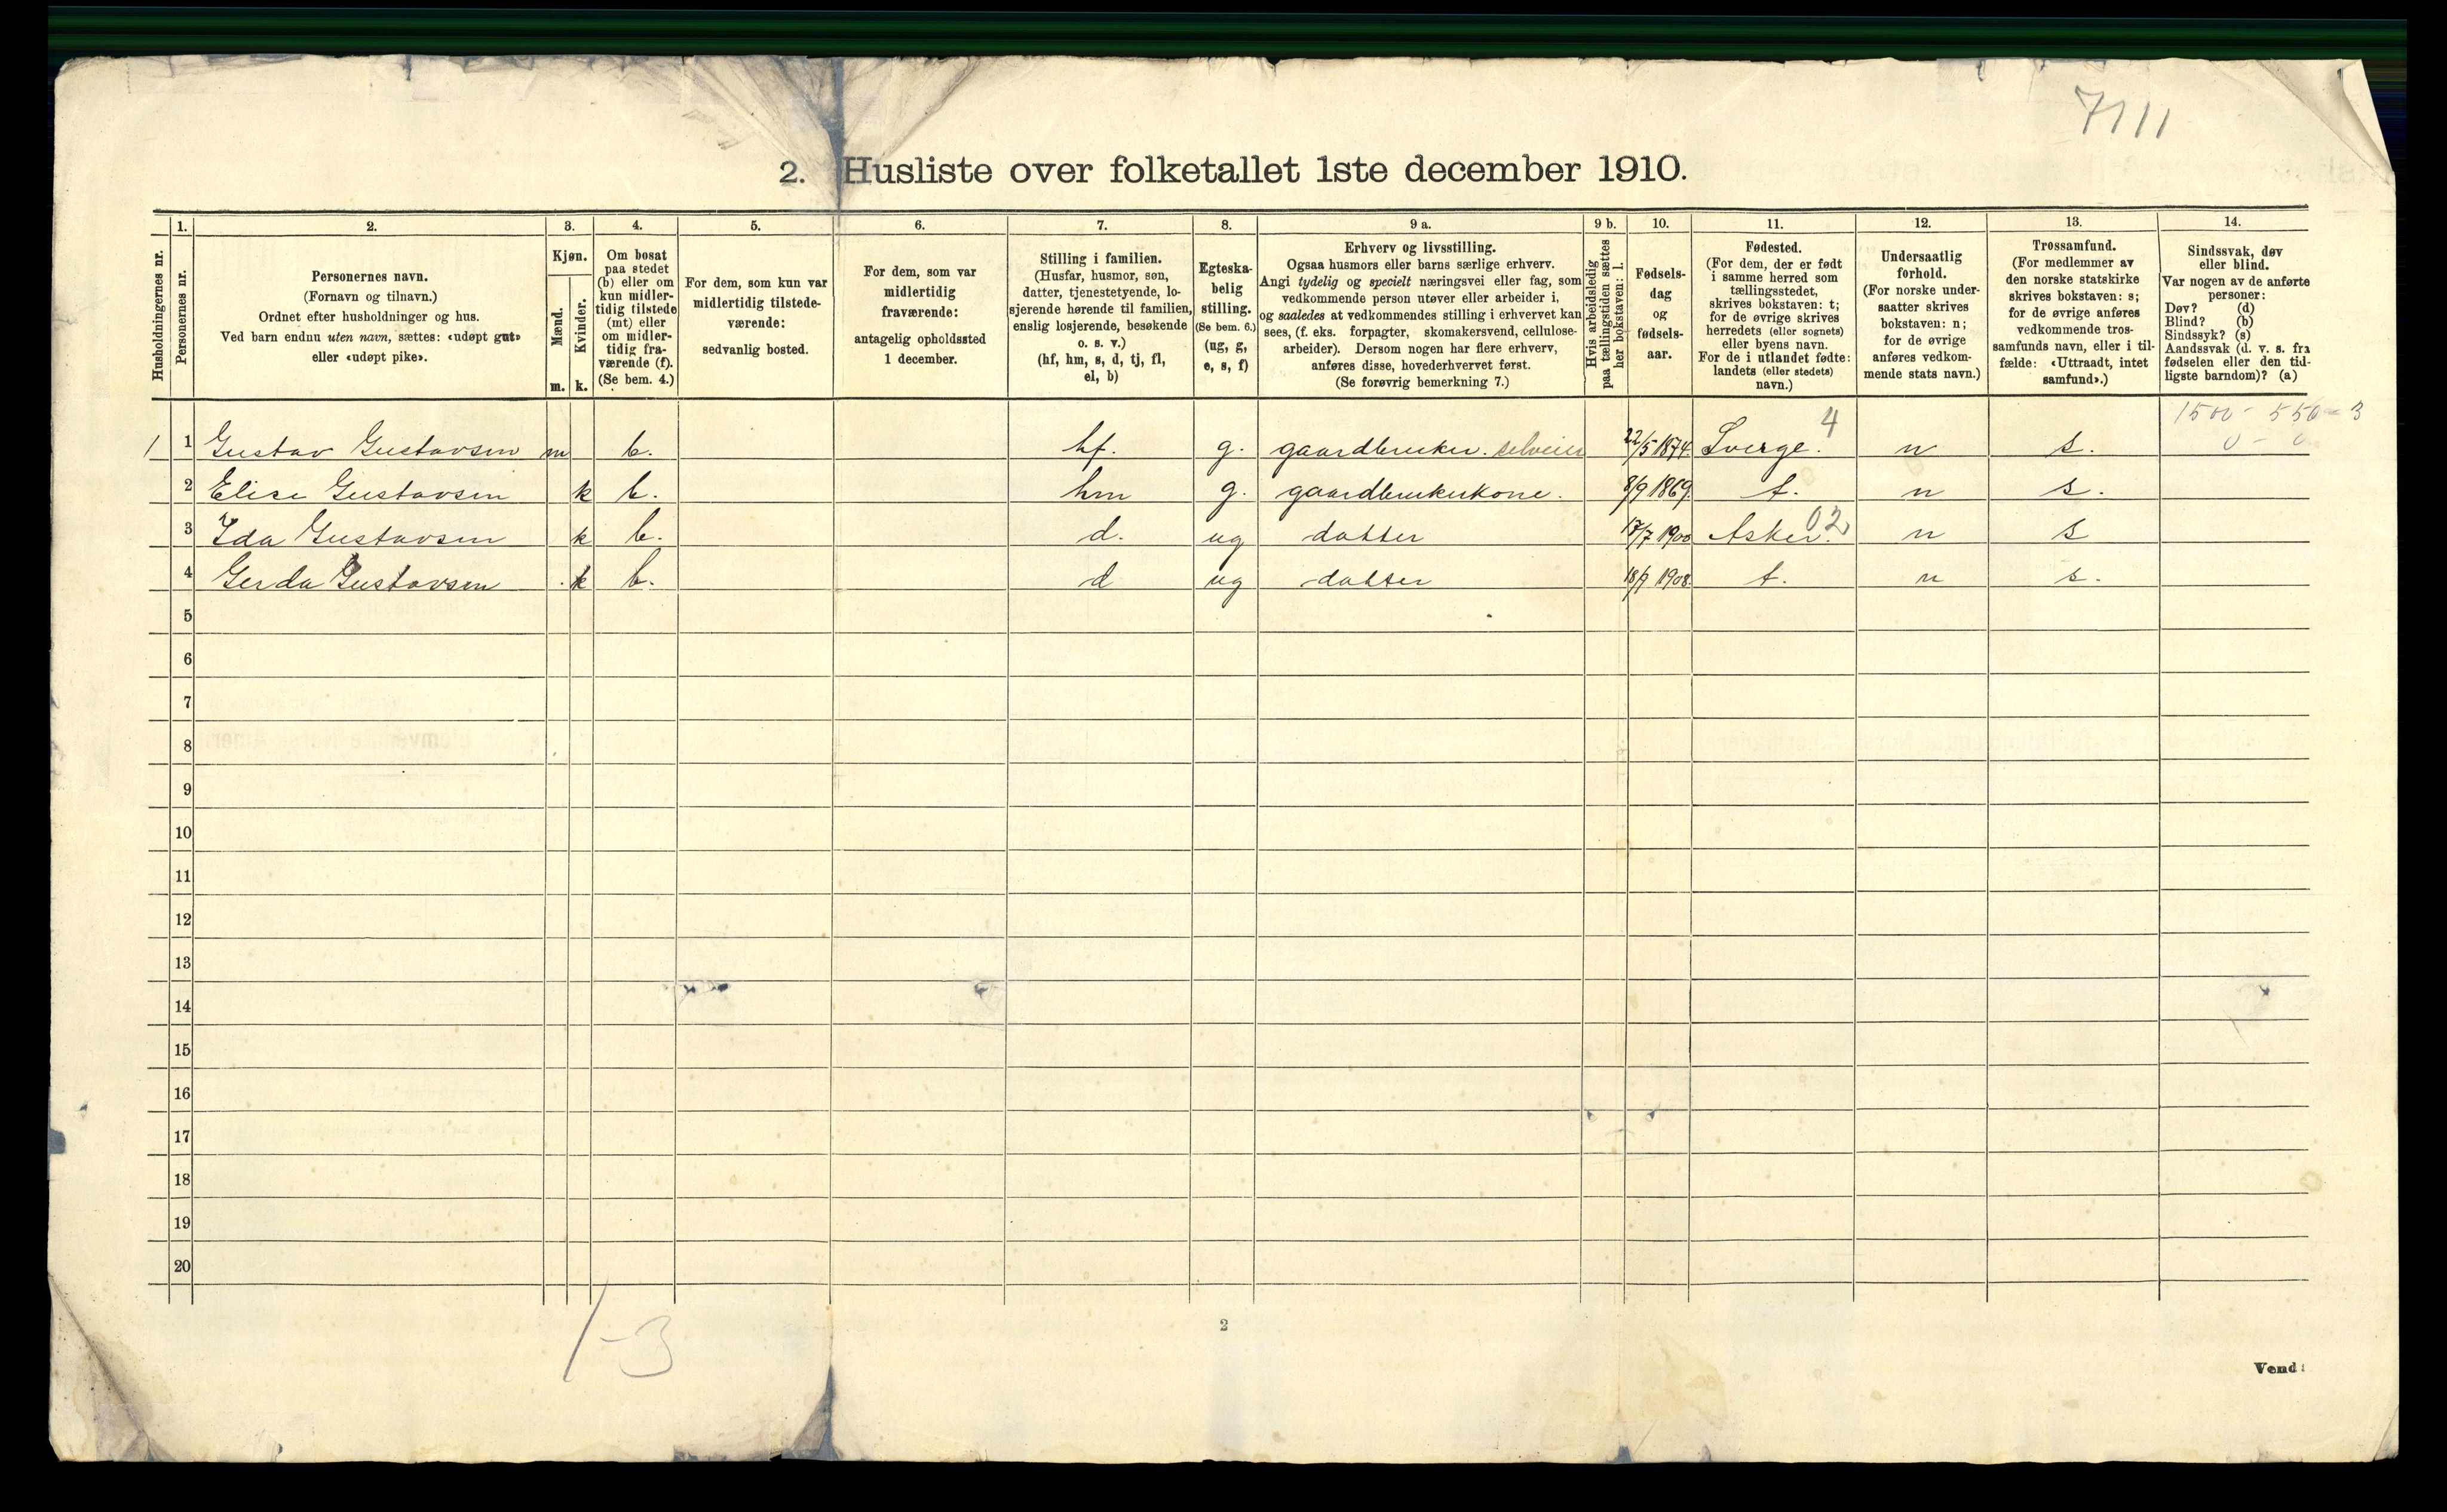 7111
2. Husliste over folketallet 1ste december 1910.
Husholdningernes nr.
1.
Personernes nr.
2.
Personernes navn.
(Fornavn og tilnavn.)
Ordnet efter husholdninger og hus.
Ved barn endnu uten navn, sættes: «udøpt gut»
eller «udøpt pike».
3.
Kjøn.
Mænd.
Kvinder.
m. k.
4.
Om bosat
paa stedet
(b) eller om
kun midler-
tidig tilstede
(mt) eller
om midler-
tidig fra-
værende (f).
(Se bem. 4.)
5.
For dem, som kun var
midlertidig tilstede-
værende:
sedvanlig bosted.
6.
For dem, som var
midlertidig
fraværende:
antagelig opholdssted
1 december.
7.
Stilling i familien.
(Husfar, husmor, søn,
datter, tjenestetyende, lo-
sjerende hørende til familien,
enslig losjerende, besøkende
o. s. v.)
(hf, hm, s, d, tj, fl,
el, b)
8.
Egteska-
belig
stilling.
(Se bem. 6.)
(ug, g,
e, s, f)
9 a.
Erhverv og livsstilling.
Ogsaa husmors eller barns særlige erhverv.
Angi tydelig og specielt næringsvei eller fag, som
vedkommende person utøver eller arbeider i,
og saaledes at vedkommendes stilling i erhvervet kan
sees, (f. eks. forpagter, skomakersvend, cellulose-
arbeider). Dersom nogen har flere erhverv,
anføres disse, hovederhvervet først.
(Se forøvrig bemerkning 7.)
9 b.
Hvis arbeidsledig
paa tællingstiden sættes
her bokstaven: l.
10.
Fødsels-
dag
og
fødsels-
aar.
11.
Fødested.
(For dem, der er født
i samme herred som
tællingsstedet,
skrives bokstaven: t;
for de øvrige skrives
herredets (eller sognets)
eller byens navn.
For de i utlandet fødte:
landets (eller stedets)
navn.)
12.
Undersaatlig
forhold.
(For norske under-
saatter skrives
bokstaven: n;
for de øvrige
anføres vedkom-
mende stats navn.)
13.
Trossamfund.
(For medlemmer av
den norske statskirke
skrives bokstaven: s;
for de øvrige anføres
vedkommende tros-
samfunds navn, eller i til-
fælde: «Uttraadt, intet
samfund».)
14.
Sindssvak, døv
eller blind.
Var nogen av de anførte
personer:
Døv? (d)
Blind? (b)
Sindssyk? (s)
Aandssvak (d. v. s. fra
fødselen eller den tid-
ligste barndom)? (a)
1500 - 550 - 3
0 - 0
1 1 Gustav Gustavsen m b. hf. g. gaardbruker. selveier 22/5 1874. Sverge. 4 n s.
2 Elise Gustavsen k b. hm g. gaardbrukerkone. 8/9 1869. t. n s.
3 Ida Gustavsen k b. d. ug datter 17/7 1900 Asker. 02 n s
4 Gerda Gustavsen k b. d ug datter 18/9 1908. t. n s.
5
6
7
8
9
10
11
12
13
14
15
16
17
18
19
20
1-3
2
Vend!